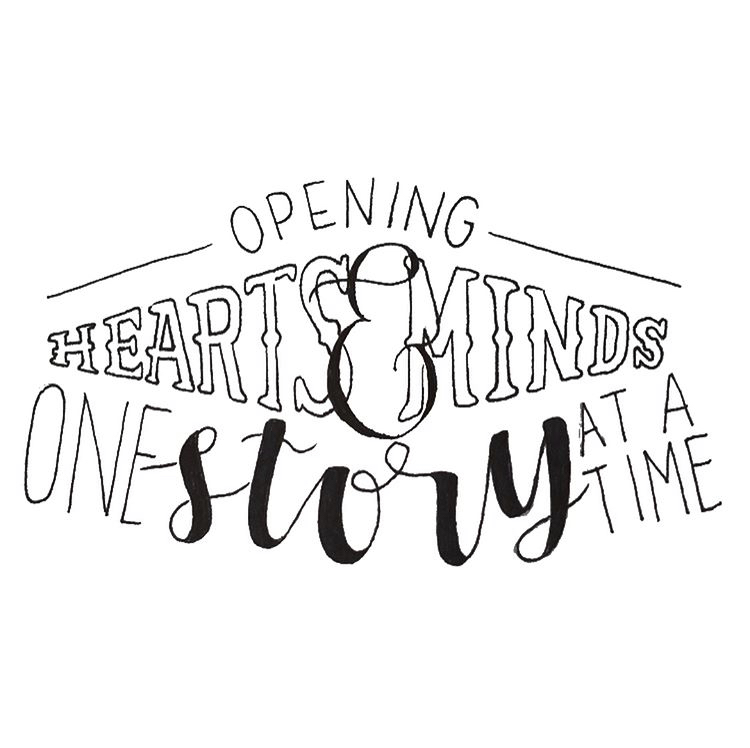 OPENING
HEARTS & MINDS
ONE story AT A
TIME